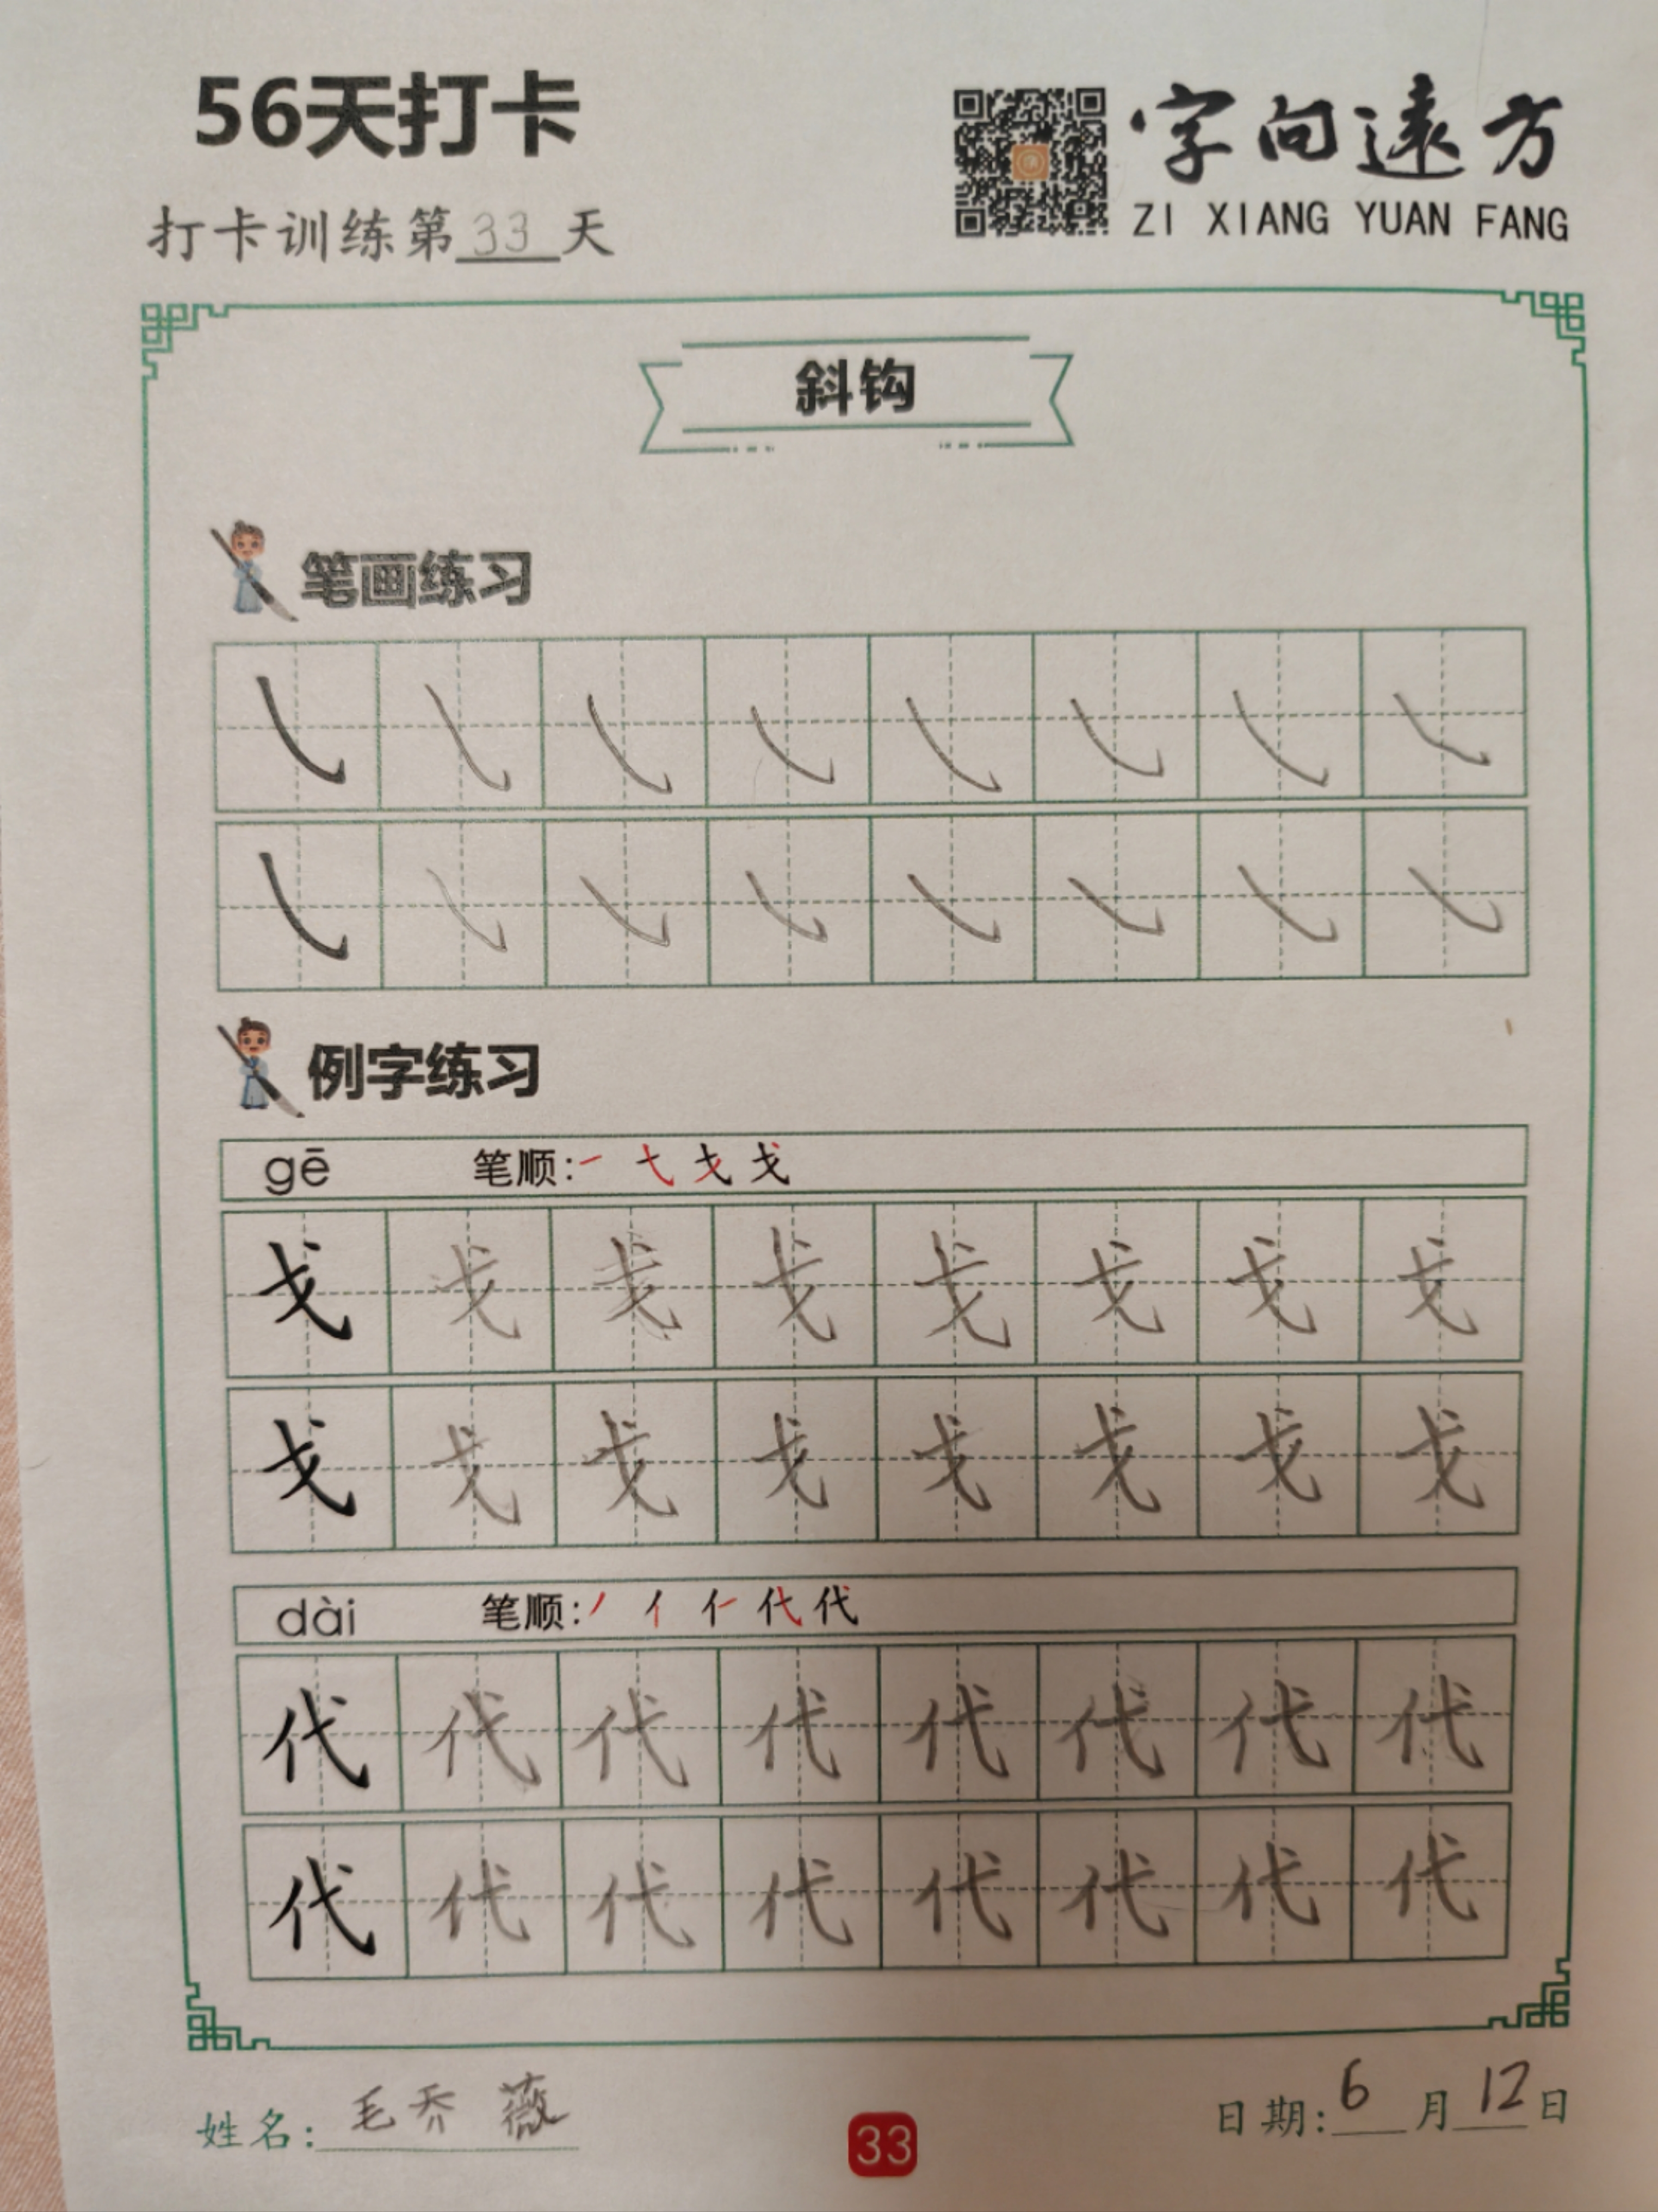 56天打卡
字向遠方
ZI XIANG YUAN FANG
打卡训练第33天
斜钩
笔画练习
例字练习
gē 笔顺:
戈 戈 戈 戈 戈 戈 戈 戈
戈 戈 戈 戈 戈 戈 戈 戈
dài 笔顺: 丿 亻 代 代
代 代 代 代 代 代 代 代
代 代 代 代 代 代 代 代
姓名: 毛乔薇
33
日期: 6月12日